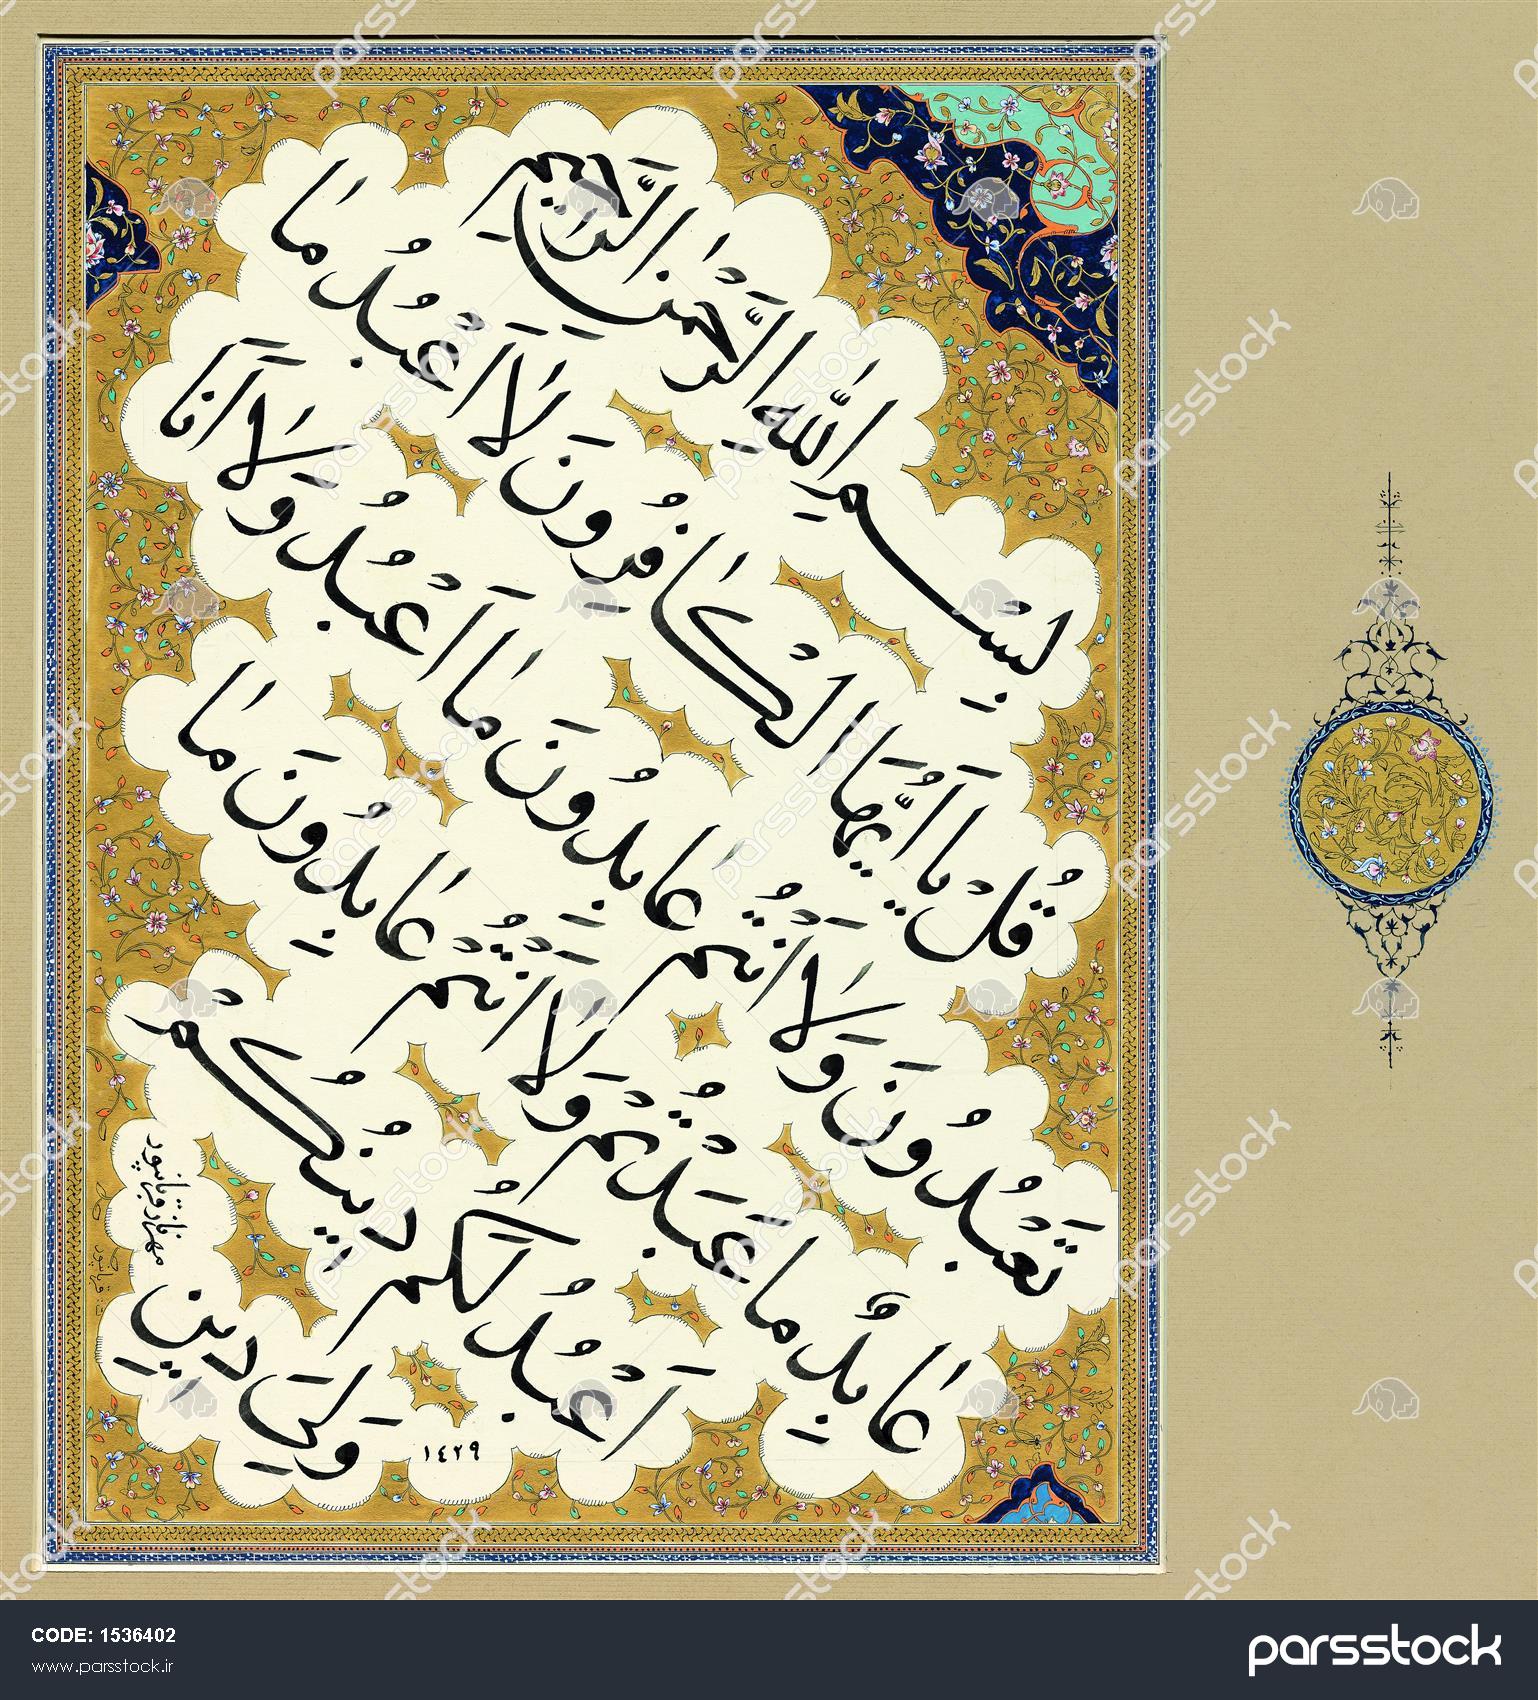 بِسْمِ اللهِ الرَّحْمٰنِ الرَّحیمِ
قُلْ یٰا اَیُّهَا الْکٰافِرُونَ لٰا اَعْبُدُ مٰا
تَعْبُدُونَ وَلٰا اَنْتُمْ عٰابِدُونَ مٰا اَعْبُدُ وَلٰا اَنَا
عٰابِدٌ مٰا عَبَدْتُمْ وَلٰا اَنْتُمْ عٰابِدُونَ مٰا
اَعْبُدُ لَکُمْ دینُکُمْ
وَلِیَ دینِ
١٤٢٩
مهناز قربانپور
CODE: 1536402
www.parsstock.ir
parsstock